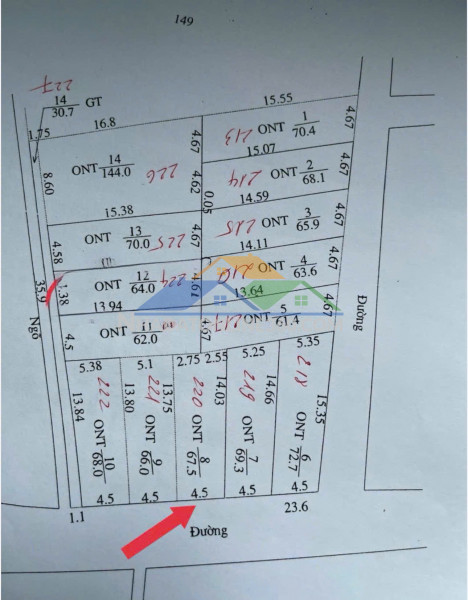 149
227
14
30.7
GT
1.75
16.8
15.55
4.67
213
ONT
1
70.4
4.67
15.07
8.60
ONT
14
144.0
226
4.62
214
ONT
2
68.1
4.67
0.05
14.59
15.38
4.58
ONT
13
70.0
225
4.67
215
ONT
3
65.9
4.67
14.11
35.9
1.38
ONT
12
64.0
224
4.61
216
ONT
4
63.6
4.67
13.94
13.64
Ngõ
4.5
ONT
11
62.0
4.67
217
5
61.4
4.67
Đường
5.38
5.1
2.75
2.55
5.25
5.35
13.84
222
ONT
10
68.0
13.80
221
ONT
9
66.0
13.75
220
ONT
8
67.5
14.03
219
ONT
7
69.3
14.66
218
ONT
6
72.7
15.35
4.5
4.5
4.5
4.5
4.5
1.1
23.6
Đường